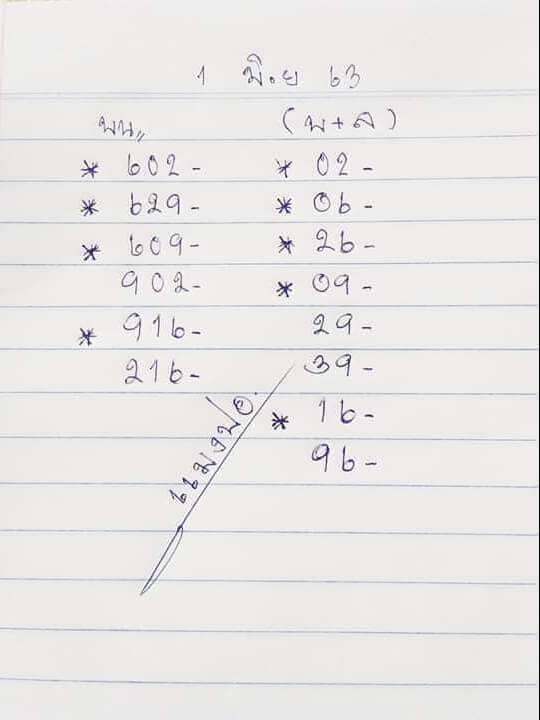 1 มิ.ย 63
บน,, (บ+ล)
* 602- * 02-
* 629- * 06-
* 609- * 26-
902- * 09-
* 916- 29-
216- 39-
* 16-
96-
แมงปอ.